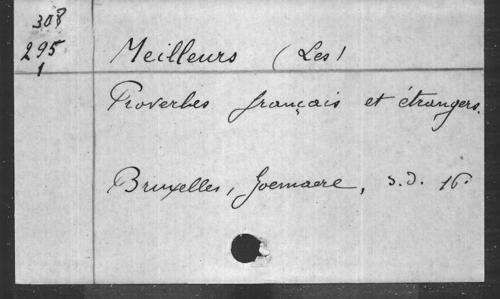 308
295
1
Meilleurs (Les)
Proverbes français et étrangers.
Bruxelles, Goemaere, s.d. 16°